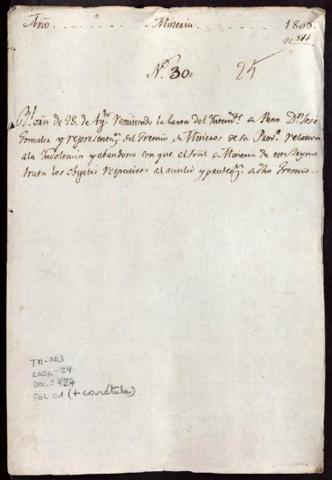 Año . . . . . Mineria . . . . . 1805
Nº 30. 25
Rl. orñ de 28. de Agto remitiendo la carta del Intend.te de Puno Dn. José
Gonzalez y representn. del Gremio de Mineros de su Prov.a relativa
a la indolencia y abandono con que el tral de Mineria de este Reyno
trata los objetos respectivos al auxilio y protecn. de dho Gremio.
TM-AD3
CAJA-24
DOC: 427
FOL 01 (+ carátula)